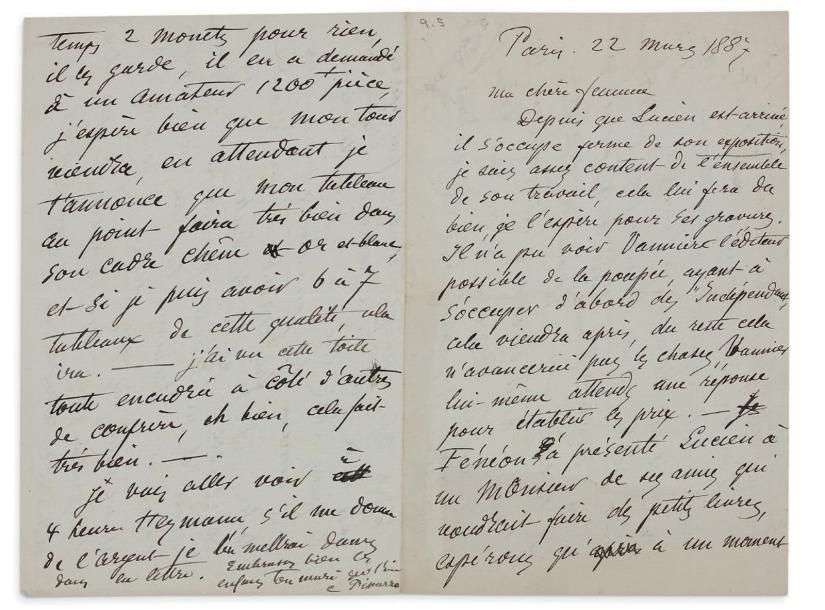 9.5
Paris. 22 mars 1887
ma chère femme
Depuis que Lucien est arrivé,
il s'occupe ferme de son exposition,
je suis assez content de l'ensemble
de son travail, cela lui fera du
bien, je l'espère pour ses gravures.
Il n'a pu voir Vannier l'éditeur
possible de la poupée ayant à
s'occuper d'abord des Indépendants,
cela viendra après, du reste cela
n'avancerait pas les choses, Vannier
lui-même attends une réponse
pour établir les prix. —
Fénéon a présenté Lucien à
un Monsieur de ses amis qui
voudrait faire des petits livres,
espérons qu'à un moment
temps 2 monets pour rien,
il les garde, il en a demandé
à un amateur 1200 pièce,
j'espère bien que mon tour
viendra, en attendant je
t'annonce que mon tableau
au point faira très bien dans
son cadre chêne et or et blanc,
et si je puis avoir 6 à 7
tableaux de cette qualité, cela
ira. — j'ai vu cette toile
toute encadrée à côté d'autres
de confrère, eh bien, cela fait
très bien. —
je vais aller voir à
4 heures Heymann, s'il me donne
de l'argent je t'en mettrai dans
dans en lettre. Embrasses bien les
enfants ton mari
C Pissarro